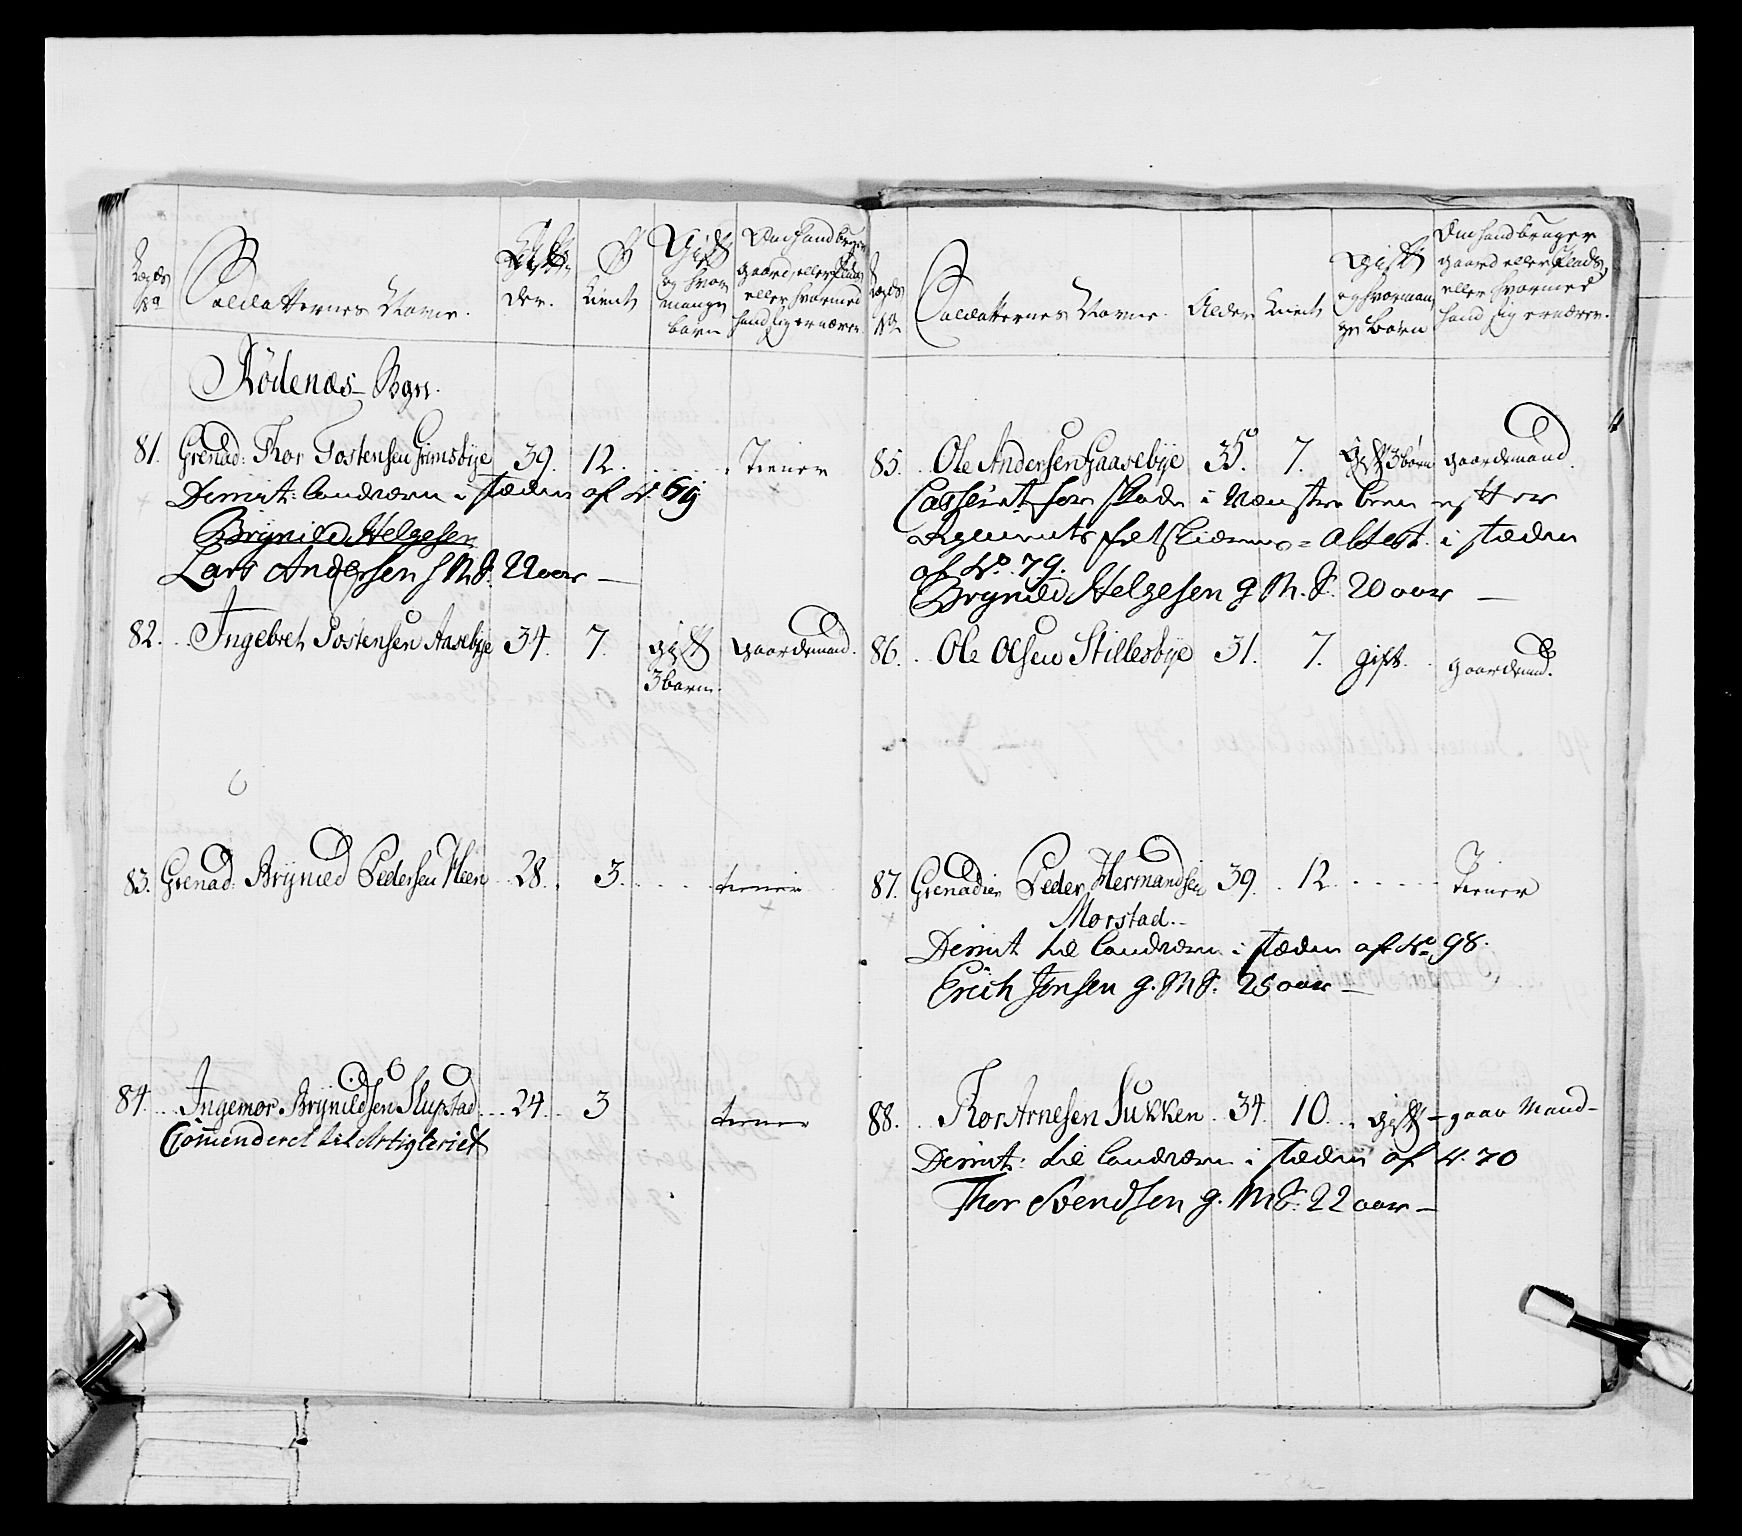 Lægds No
Soldatternes Navne.
Alder.
Tient
Gift og hvor mange børn
Om hand bruger gaard, eller Plads eller hvormed hand sig ernærer
Rødenæs Sogn.
81. Grenad: Thor Tostensen Grimsbye 39. 12. Tiener
Dimit: landværn i stæden af No 69
Brynild Helgesen
Lars Andersen g M S. 22 aar —
82. Ingebret Tostensen Aasebye 34. 7. gift 3 børn. gaardmand.
83. Grenad: Brynild Pedersen Kleen 28. 3. tiener
84. Ingemor Brynildsen Slupstad 24. 3 tiener
Commenderet til Artigleriet
Lægds No
Soldatternes Navne. Alder Tient
Gift og hvor mange Børn
Om hand bruger gaard eller Plads, eller hvormed hand sig ernærer.
85. Ole Andersen Gaasebye 35. 7. Gift 3 børn gaardmand.
Casseret for skade i Venstre been efter
Regiments feltskiærers Attest i stæden
af No 79.
Brynild Helgesen g M. S. 20 aar —
86. Ole Olsen Stillesbye 31. 7. gift. gaardmand.
87. Grenadier Peder Hermandsen 39. 12. Tiener
Morstad.
Dimit til landværn i stæden af No 98.
Erich Jensen g. M S. 25 aar —
88. Thor Arnesen Sukken 34. 10. gift — gaar Mand —
Dimit: til landværn i stæden af No 70
Thor Svendsen g. M S. 22 aar —